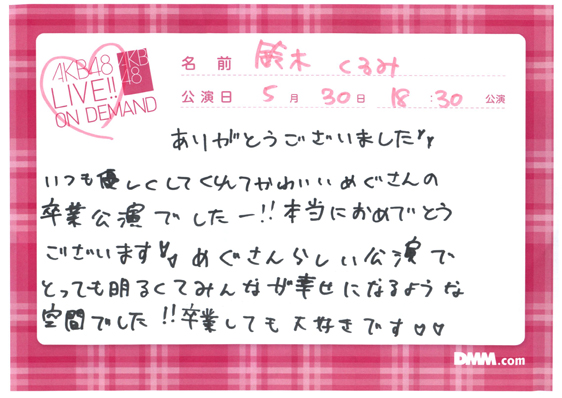 AKB48
LIVE!!
ON DEMAND
AKB
48
名前 鈴木 くるみ
公演日 5月 30日 18:30 公演
ありがとうございました♡♡
いつも優しくしてくれてかわいいめぐさんの
卒業公演でしたー!!本当におめでとう
ございます♡♡ めぐさんらしい公演で、
とっても明るくてみんなが幸せになるような
空間でした!!卒業しても大好きです♡♡
DMM.com